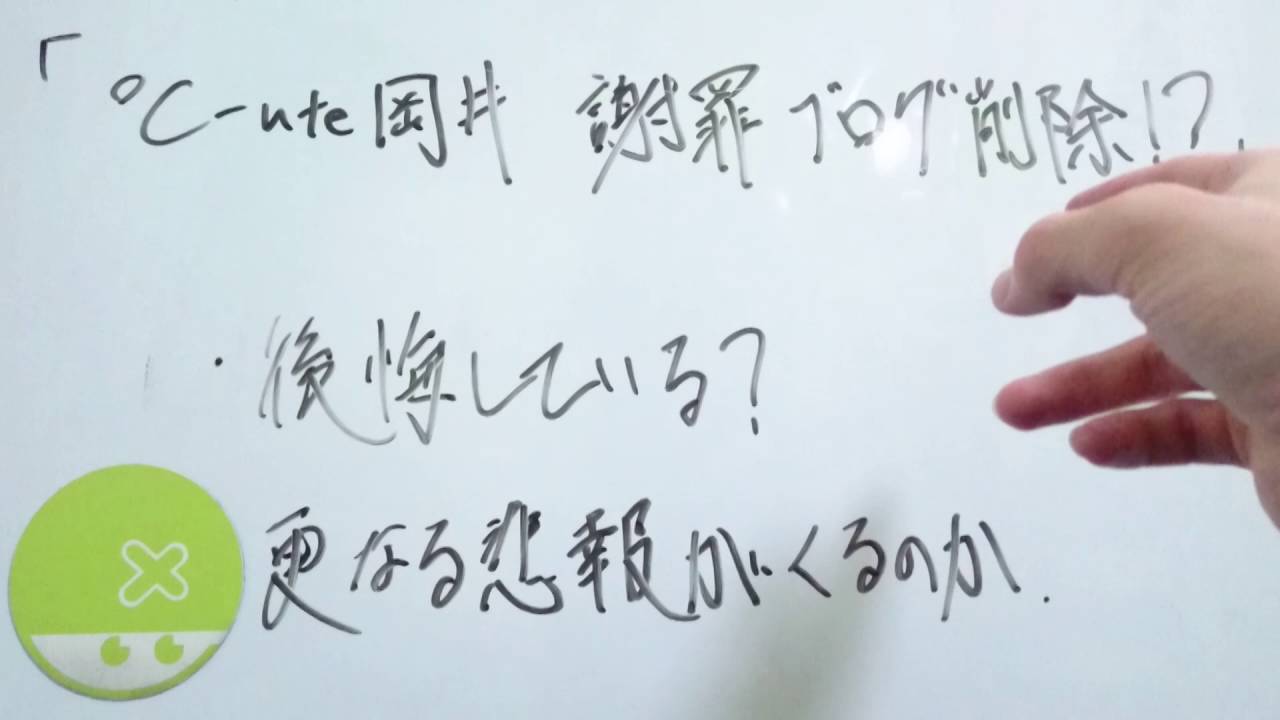 「℃-ute岡井 謝罪ブログ削除!?.
・後悔している?
更なる悲報がくるのか.